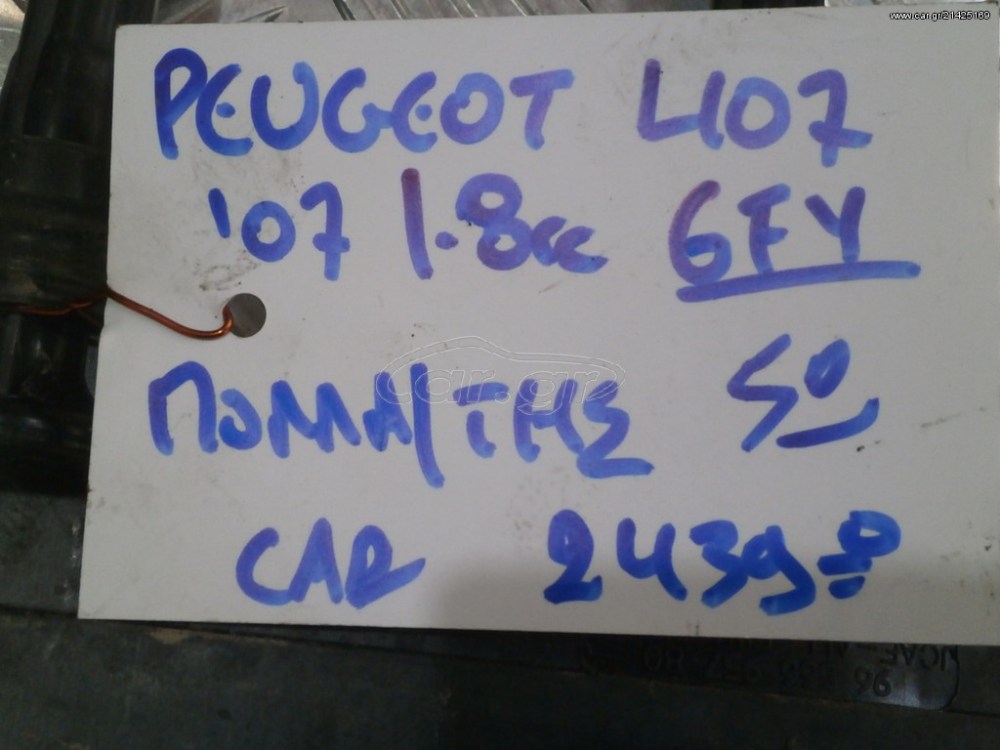 www.car.gr/21425169
PEUGEOT 407
'07 1.8cc 6FY
ΠΟΛΛΑ/ΤΗΣ 5º
CAR 2439
car.gr
96